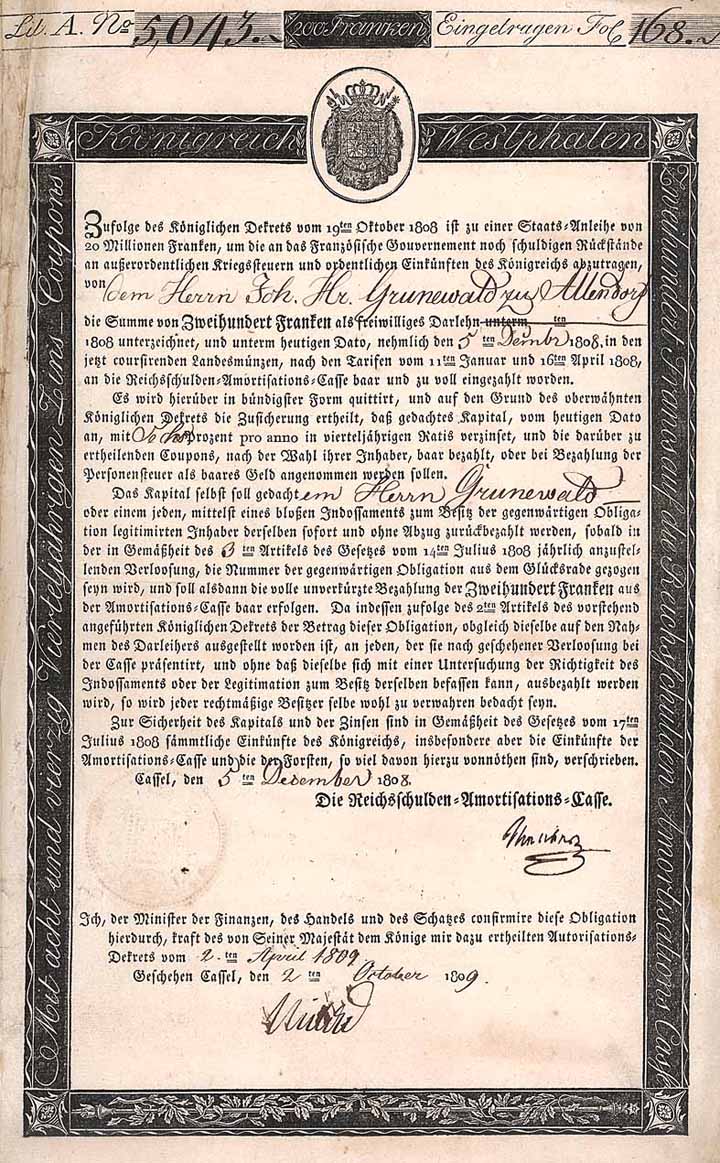 Lit. A. No 5,043. 200 Franken Eingetragen Fol 168.
Königreich Westphalen
Mit acht und vierzig Vierteljährigen Zins Coupons
Zweihundert Francs auf die Reichsschulden Amortisations Casse
Zufolge des Königlichen Dekrets vom 19ten Oktober 1808 ist zu einer Staats-Anleihe von
20 Millionen Franken, um die an das Französische Gouvernement noch schuldigen Rückstände
an außerordentlichen Kriegssteuern und ordentlichen Einkünften des Königreichs abzutragen,
von dem Herrn Joh. Hr. Grunewald zu Allendorf
die Summe von Zweihundert Franken als freiwilliges Darlehn unterm ten
1808 unterzeichnet, und unterm heutigen Dato, nehmlich den 5 ten Dembr 1808, in den
jetzt coursirenden Landesmünzen, nach den Tarifen vom 11ten Januar und 16ten April 1808,
an die Reichsschulden-Amortisations-Casse baar und zu voll eingezahlt worden.
Es wird hierüber in bündigster Form quittirt, und auf den Grund des oberwähnten
Königlichen Dekrets die Zusicherung ertheilt, daß gedachtes Kapital, vom heutigen Dato
an, mit prozent pro anno in vierteljährigen Ratis verzinset, und die darüber zu
ertheilenden Coupons, nach der Wahl ihrer Inhaber, baar bezahlt, oder bei Bezahlung der
Personensteuer als baares Geld angenommen werden sollen.
Das Kapital selbst soll gedachtem Herrn Grunewald
oder einem jeden, mittelst eines bloßen Indossaments zum Besitz der gegenwärtigen Obliga-
tion legitimirten Inhaber derselben sofort und ohne Abzug zurückbezahlt werden, sobald in
der in Gemäßheit des 3 ten Artikels des Gesetzes vom 14ten Julius 1808 jährlich anzustel-
lenden Verloosung, die Nummer der gegenwärtigen Obligation aus dem Glücksrade gezogen
seyn wird, und soll alsdann die volle unverkürzte Bezahlung der Zweihundert Franken aus
der Amortisations-Casse baar erfolgen. Da indessen zufolge des 2ten Artikels des vorstehend
angeführten Königlichen Dekrets der Betrag dieser Obligation, obgleich dieselbe auf den Nah-
men des Darleihers ausgestellt worden ist, an jeden, der sie nach geschehener Verloosung bei
der Casse präsentirt, und ohne daß dieselbe sich mit einer Untersuchung der Richtigkeit des
Indossaments oder der Legitimation zum Besitz derselben befassen kann, ausbezahlt werden
wird, so wird jeder rechtmäßige Besitzer selbe wohl zu verwahren bedacht seyn.
Zur Sicherheit des Kapitals und der Zinsen sind in Gemäßheit des Gesetzes vom 17ten
Julius 1808 sämmtliche Einkünfte des Königreichs, insbesondere aber die Einkünfte der
Amortisations-Casse und die der Forsten, so viel davon hierzu vonnöthen sind, verschrieben.
Cassel, den 5 ten December 1808.
Die Reichsschulden-Amortisations-Casse.
Ich, der Minister der Finanzen, des Handels und des Schatzes confirmire diese Obligation
hierdurch, kraft des von Seiner Majestät dem Könige mir dazu ertheilten Autorisations-
Dekrets vom 2. ten April 1809
Geschehen Cassel, den 2 ten October 1809.